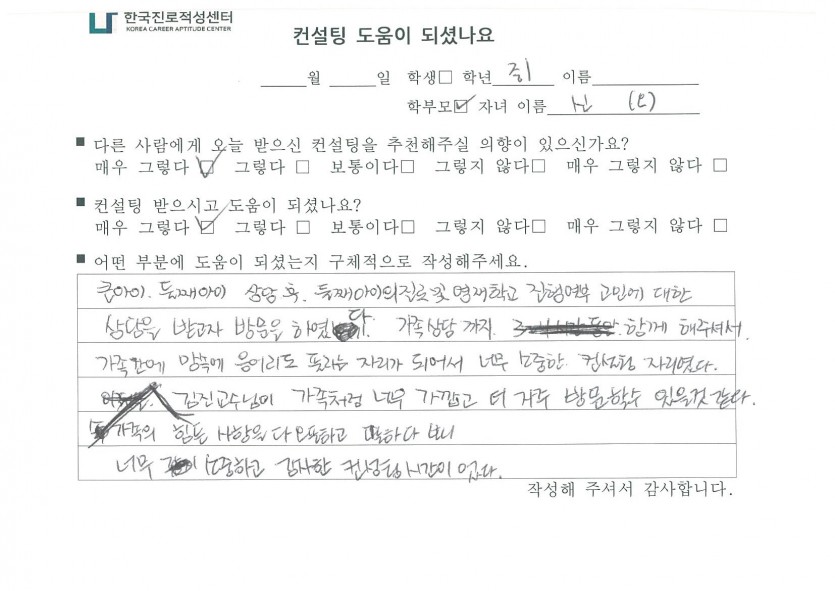 한국진로적성센터
KOREA CAREER APTITUDE CENTER
컨설팅 도움이 되셨나요
____월 ____일 학생□ 학년 중1 이름
학부모☑ 자녀 이름 신 (오)
■ 다른 사람에게 오늘 받으신 컨설팅을 추천해주실 의향이 있으신가요?
매우 그렇다 ☑ 그렇다 □ 보통이다□ 그렇지 않다□ 매우 그렇지 않다 □
■ 컨설팅 받으시고 도움이 되셨나요?
매우 그렇다 ☑ 그렇다 □ 보통이다□ 그렇지 않다□ 매우 그렇지 않다 □
■ 어떤 부분에 도움이 되셨는지 구체적으로 작성해주세요.
큰아이. 둘째아이 상담 후. 둘째아이의 진로 및 영재학교 진행여부 고민에 대한
상담을 받고자 방문을 하였다. 가족상담 까지. 함께 해주셔서.
가족간에 맘속에 응어리도 풀리는 자리가 되어서 너무 소중한 컨설팅 자리였다.
김진교수님이 가족처럼 너무 가깝고 더 자주 방문할수 있을것 같다.
가족의 힘든 사항을 다 오픈하고 말하다 보니
너무 소중하고 감사한 컨설팅 시간이 었다.
작성해 주셔서 감사합니다.